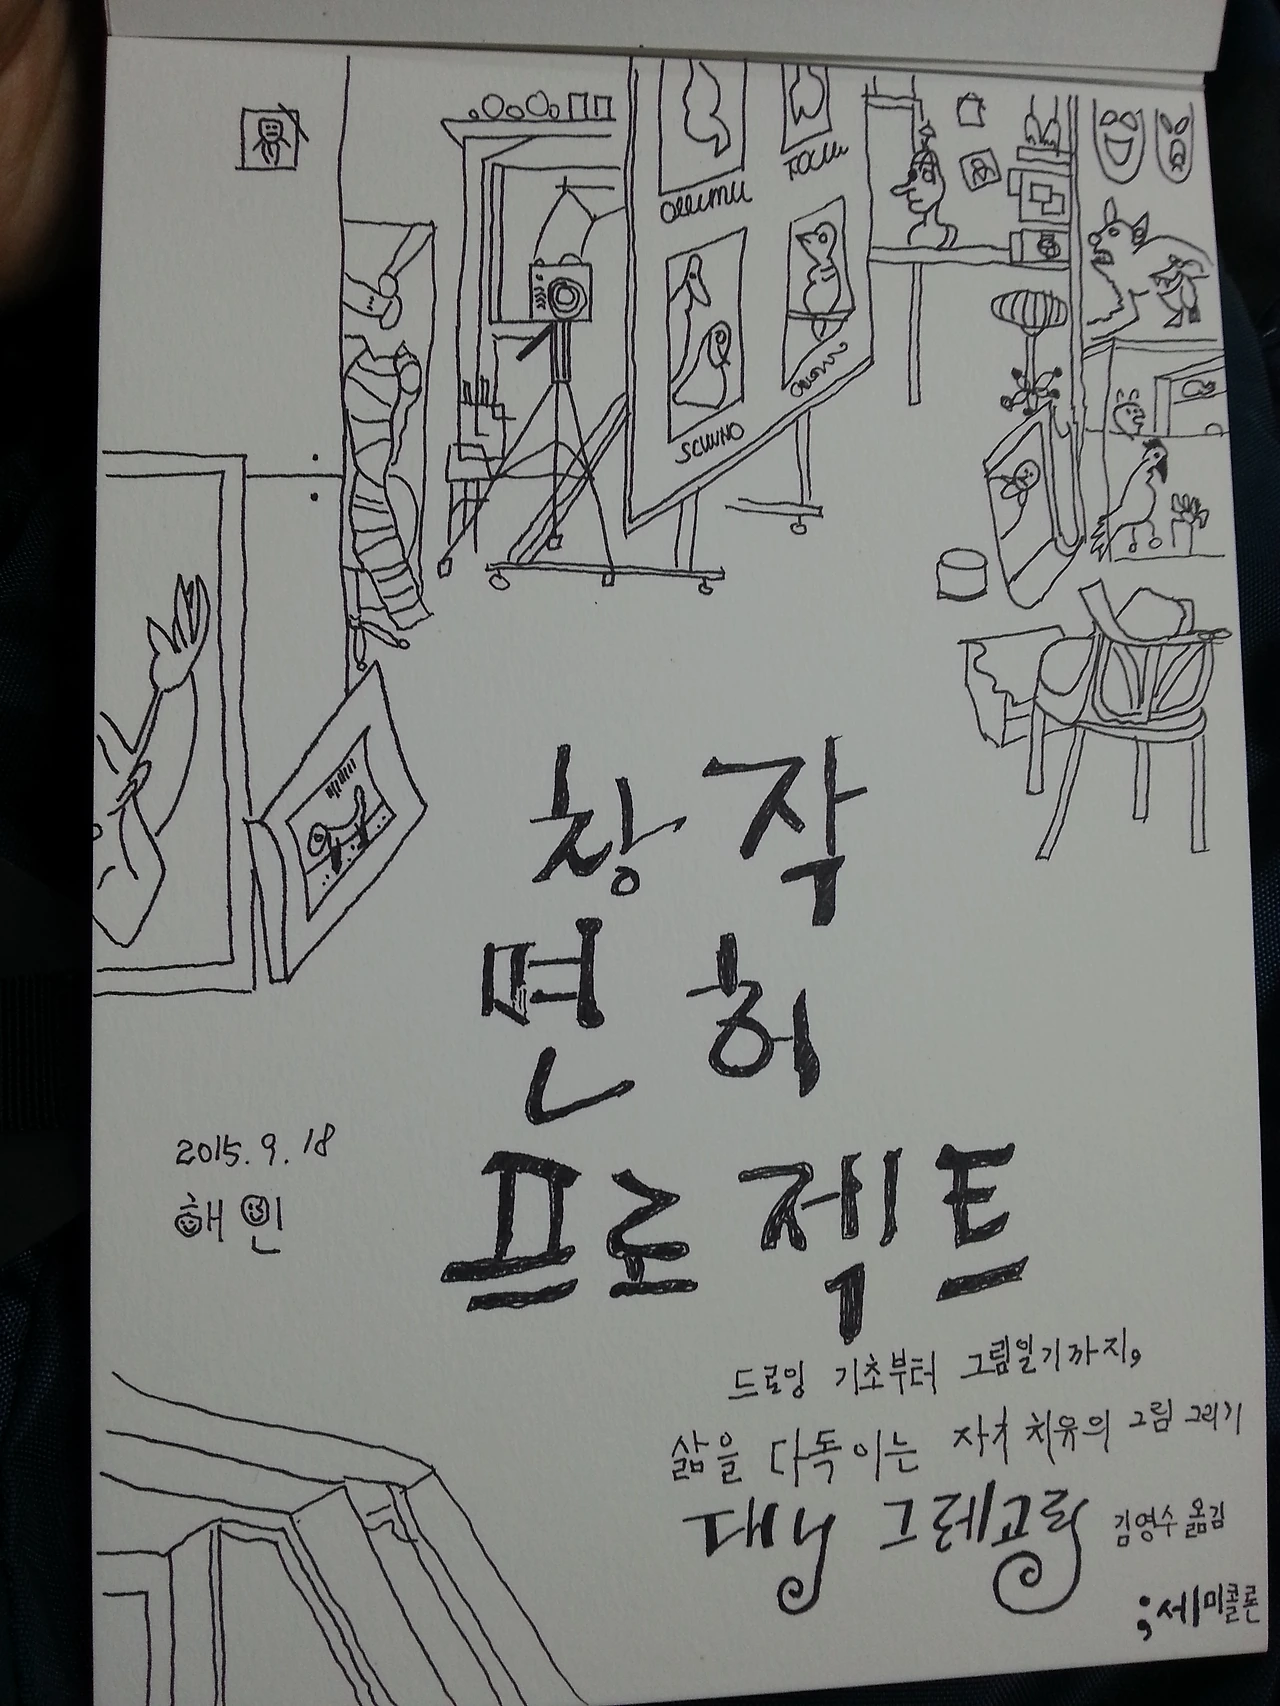 창작
면허
프로젝트
2015. 9. 18
해인
드로잉 기초부터 그림일기까지,
삶을 다독이는 자가 치유의 그림 그리기
대니 그레고리 김영수 옮김
;세미콜론